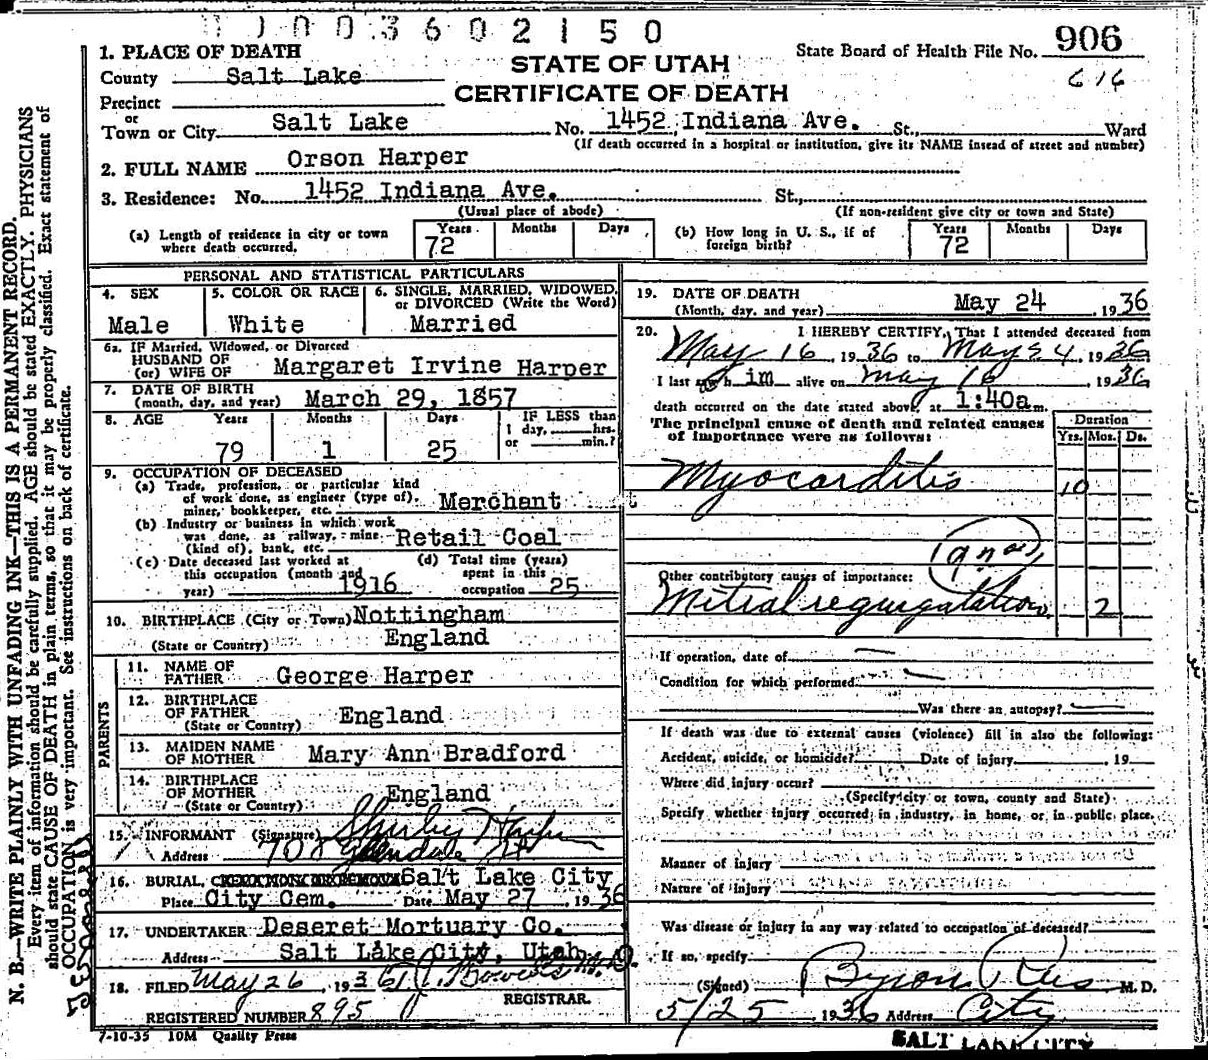 0 0 3 6 0 2 1 5 0
State Board of Health File No. 906
616
STATE OF UTAH
CERTIFICATE OF DEATH
1. PLACE OF DEATH
County Salt Lake
Precinct
or
Town or City Salt Lake No. 1452 Indiana Ave. St., Ward
(If death occurred in a hospital or institution, give its NAME insead of street and number)
2. FULL NAME Orson Harper
3. Residence: No. 1452 Indiana Ave. St.,
(Usual place of abode) (If non-resident give city or town and State)
(a) Length of residence in city or town where death occurred. Years 72 Months Days
(b) How long in U. S., if of foreign birth? Years 72 Months Days
PERSONAL AND STATISTICAL PARTICULARS
4. SEX Male
5. COLOR OR RACE White
6. SINGLE, MARRIED, WIDOWED, or DIVORCED (Write the Word) Married
6a. IF Married, Widowed, or Divorced
HUSBAND OF
(or) WIFE OF Margaret Irvine Harper
7. DATE OF BIRTH
(month, day, and year) March 29, 1857
8. AGE Years 79 Months 1 Days 25 IF LESS than 1 day, hrs. or min.?
9. OCCUPATION OF DECEASED
(a) Trade, profession, or particular kind
of work done, as engineer (type of).
miner, bookkeeper, etc. Merchant
(b) Industry or business in which work
was done, as railway, mine
(kind of), bank, etc. Retail Coal
(c) Date deceased last worked at
this occupation (month and
year) 1916
(d) Total time (years)
spent in this
occupation 25
10. BIRTHPLACE (City or Town) Nottingham
(State or Country) England
PARENTS
11. NAME OF FATHER George Harper
12. BIRTHPLACE OF FATHER
(State or Country) England
13. MAIDEN NAME OF MOTHER Mary Ann Bradford
14. BIRTHPLACE OF MOTHER
(State or Country) England
15. INFORMANT (Signature) Shirley Harper
Address 708 Glendale St
16. BURIAL, CREMATION OR REMOVAL Salt Lake City
Place City Cem. Date May 27, 1936
17. UNDERTAKER Deseret Mortuary Co.
Address Salt Lake City, Utah
18. FILED May 26, 1936
REGISTRAR.
REGISTERED NUMBER 895
7-10-35 10M Quality Press
19. DATE OF DEATH
(Month, day, and year) May 24, 1936
20. I HEREBY CERTIFY, That I attended deceased from
May 16, 1936 to May 24, 1936
I last saw him alive on May 16, 1936
death occurred on the date stated above, at 1:40a m.
The principal cause of death and related causes
of importance were as follows:
Duration
Yrs. Mos. Ds.
Myocarditis 10
Other contributory causes of importance:
Mitral regurgatation 2
If operation, date of
Condition for which performed
Was there an autopsy?
If death was due to external causes (violence) fill in also the following:
Accident, suicide, or homicide? Date of injury 19
Where did injury occur?
(Specify city or town, county and State)
Specify whether injury occurred in industry, in home, or in public place.
Manner of injury
Nature of injury
Was disease or injury in any way related to occupation of deceased?
If so, specify
(Signed) Byron Rees M. D.
5/25, 1936 Address City
SALT LAKE CITY
N. B.—WRITE PLAINLY WITH UNFADING INK—THIS IS A PERMANENT RECORD.
Every item of information should be carefully supplied. AGE should be stated EXACTLY. PHYSICIANS
should state CAUSE OF DEATH in plain terms, so that it may be properly classified. Exact statement of
OCCUPATION is very important. See instructions on back of certificate.